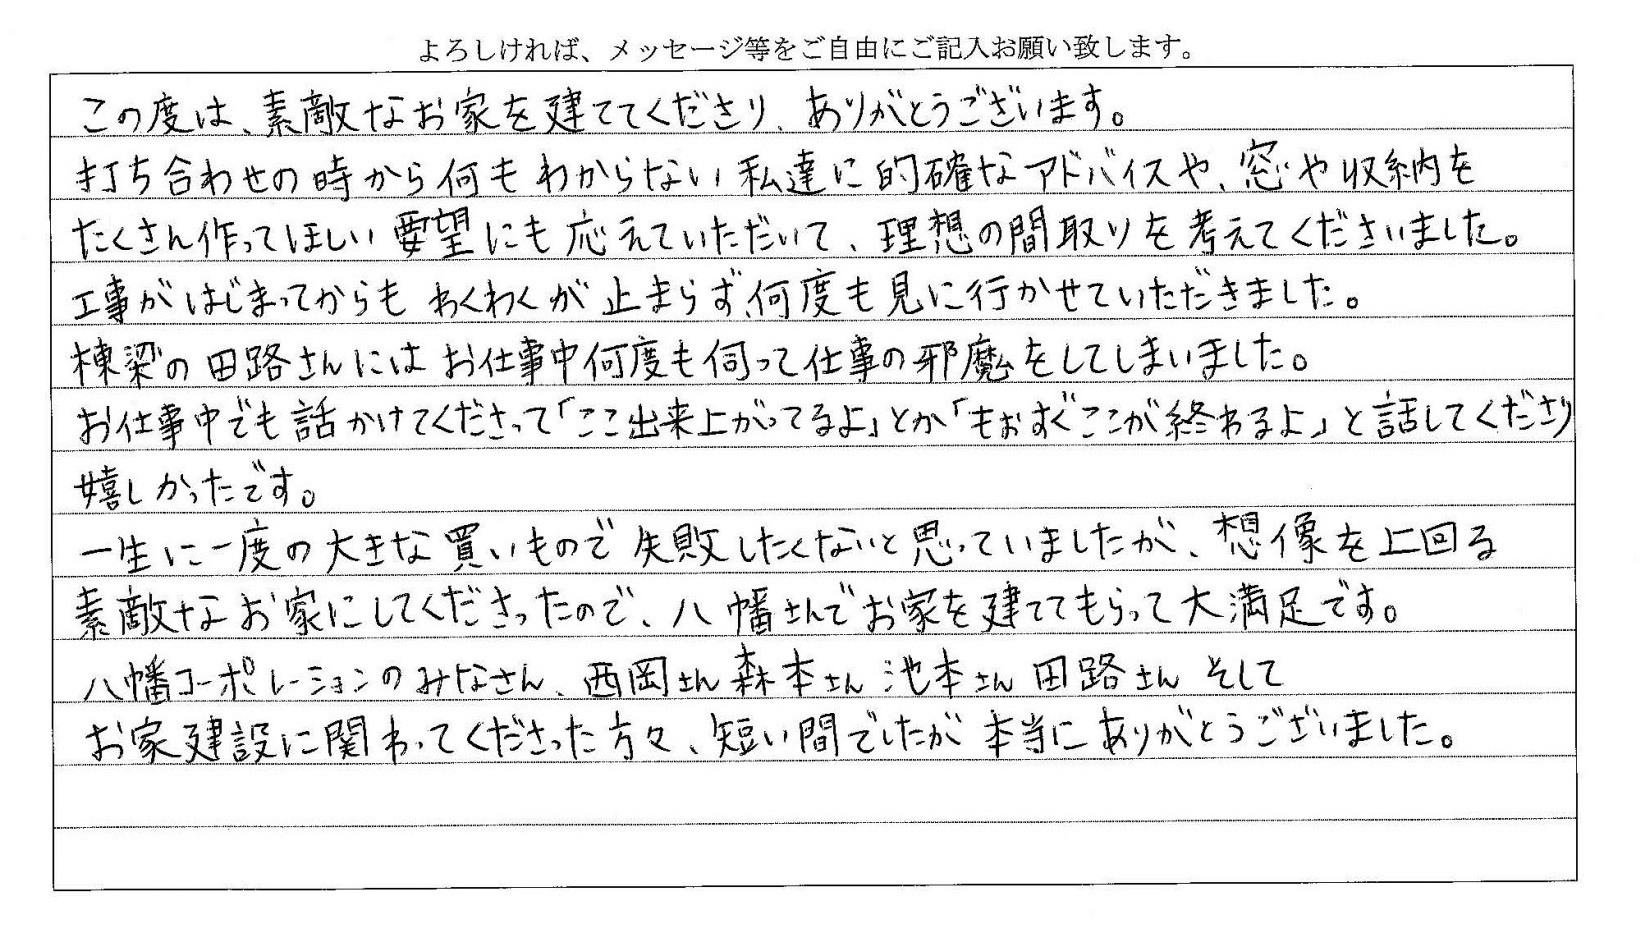 よろしければ、メッセージ等をご自由にご記入お願い致します。
この度は、素敵なお家を建ててくださり、ありがとうございます。
打ち合わせの時から何もわからない私達に的確なアドバイスや、窓や収納を
たくさん作ってほしい要望にも応えていただいて、理想の間取りを考えてくださいました。
工事がはじまってからもわくわくが止まらず、何度も見に行かせていただきました。
棟梁の田路さんにはお仕事中何度も伺って仕事の邪魔をしてしまいました。
お仕事中でも話かけてくださって「ここ出来上がってるよ」とか「もおすぐここが終わるよ」と話してくださり
嬉しかったです。
一生に一度の大きな買いもので失敗したくないと思っていましたが、想像を上回る
素敵なお家にしてくださったので、八幡さんでお家を建ててもらって大満足です。
八幡コーポレーションのみなさん、西岡さん森本さん池本さん田路さんそして
お家建設に関わってくださった方々、短い間でしたが本当にありがとうございました。